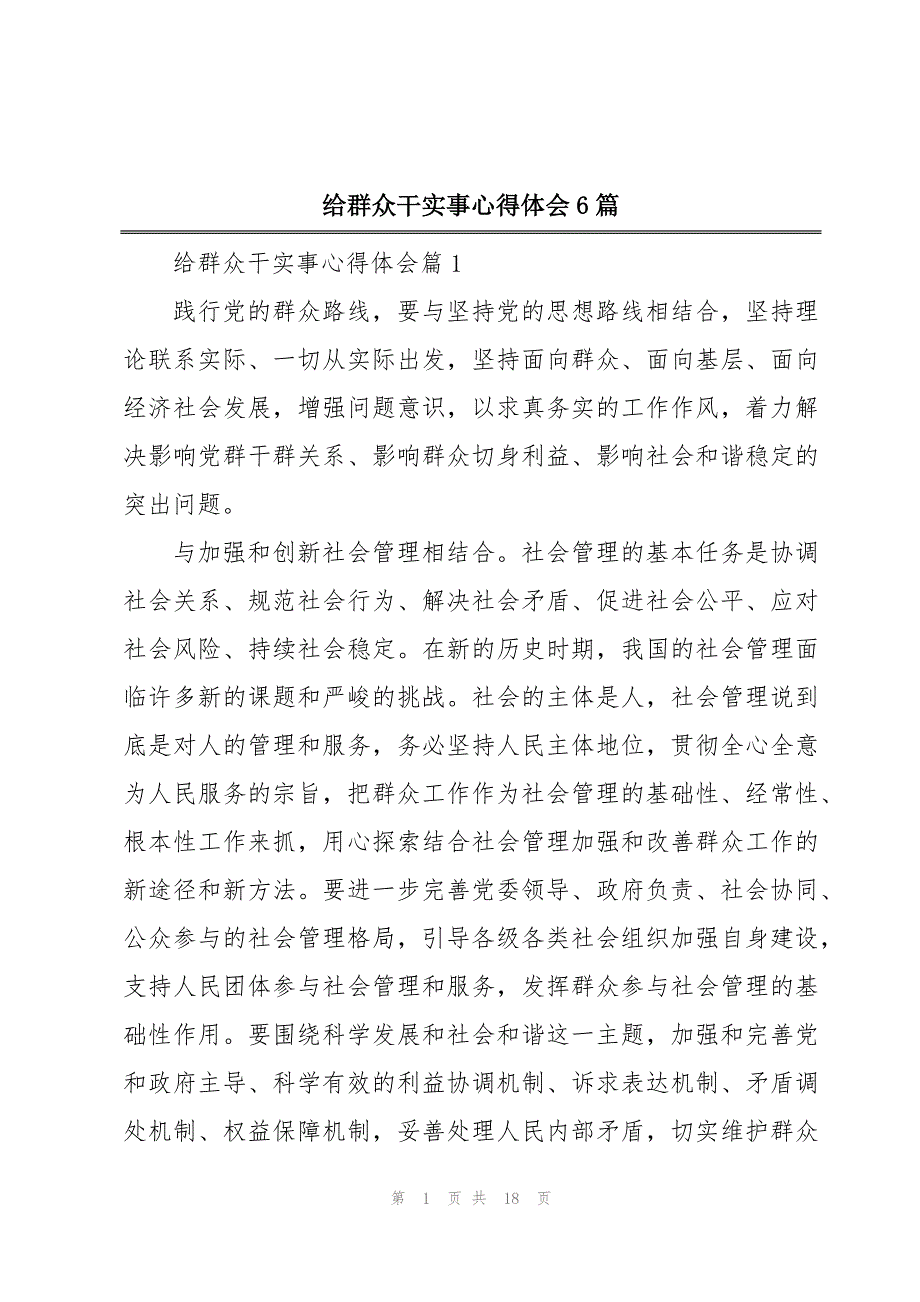 给群众干实事心得体会 6 篇
给群众干实事心得体会篇 1
践行党的群众路线，要与坚持党的思想路线相结合，坚持理
论联系实际、一切从实际出发，坚持面向群众、面向基层、面向
经济社会发展，增强问题意识，以求真务实的工作作风，着力解
决影响党群干群关系、影响群众切身利益、影响社会和谐稳定的
突出问题。
与加强和创新社会管理相结合。社会管理的基本任务是协调
社会关系、规范社会行为、解决社会矛盾、促进社会公平、应对
社会风险、持续社会稳定。在新的历史时期，我国的社会管理面
临许多新的课题和严峻的挑战。社会的主体是人，社会管理说到
底是对人的管理和服务，务必坚持人民主体地位，贯彻全心全意
为人民服务的宗旨，把群众工作作为社会管理的基础性、经常性、
根本性工作来抓，用心探索结合社会管理加强和改善群众工作的
新途径和新方法。要进一步完善党委领导、政府负责、社会协同、
公众参与的社会管理格局，引导各级各类社会组织加强自身建设，
支持人民团体参与社会管理和服务，发挥群众参与社会管理的基
础性作用。要围绕科学发展和社会和谐这一主题，加强和完善党
和政府主导、科学有效的利益协调机制、诉求表达机制、矛盾调
处机制、权益保障机制，妥善处理人民内部矛盾，切实维护群众
第 1 页 共 18 页